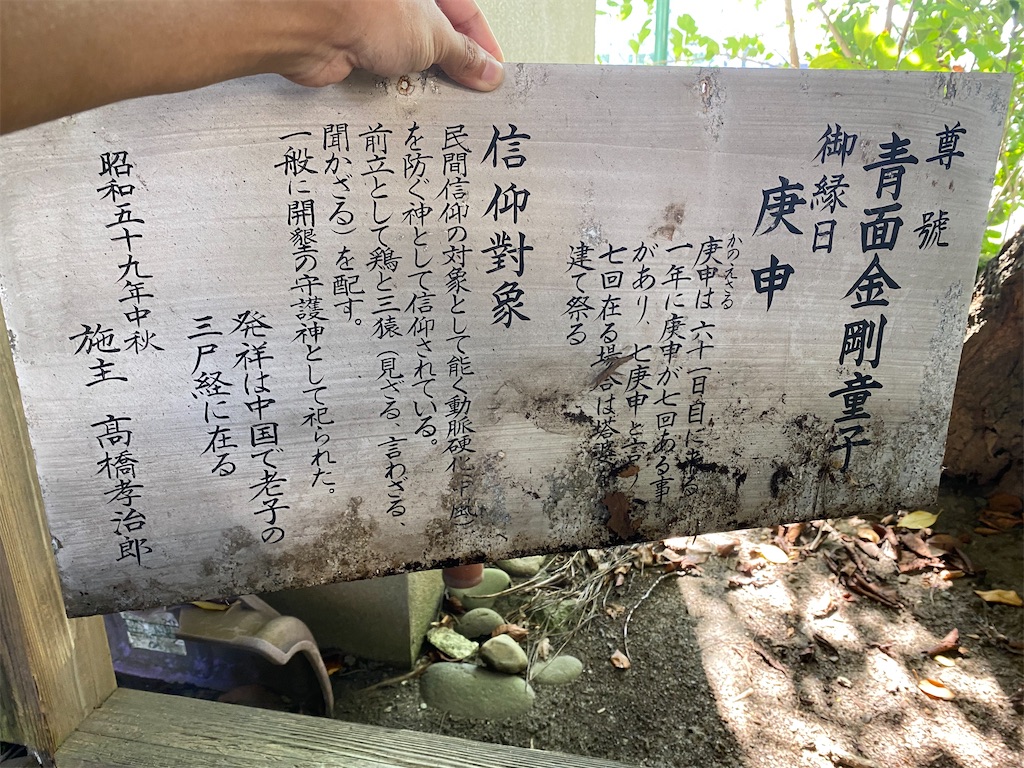 尊號
青面金剛童子
御縁日
庚申
かのえさる
庚申は 六十一日目に来る
一年に庚申が七回ある事
があり、七庚申と言
七回在る場合は塔婆
建て祭る
信仰對象
民間信仰の対象として能く動脈硬化
を防ぐ神として信仰されている。
前立として鶏と三猿（見ざる、言わざる、
聞かざる）を配す。
一般に開墾の守護神として祀られた。
発祥は中国で老子の
三尸経に在る
昭和五十九年中秋
施主 髙橋孝治郎